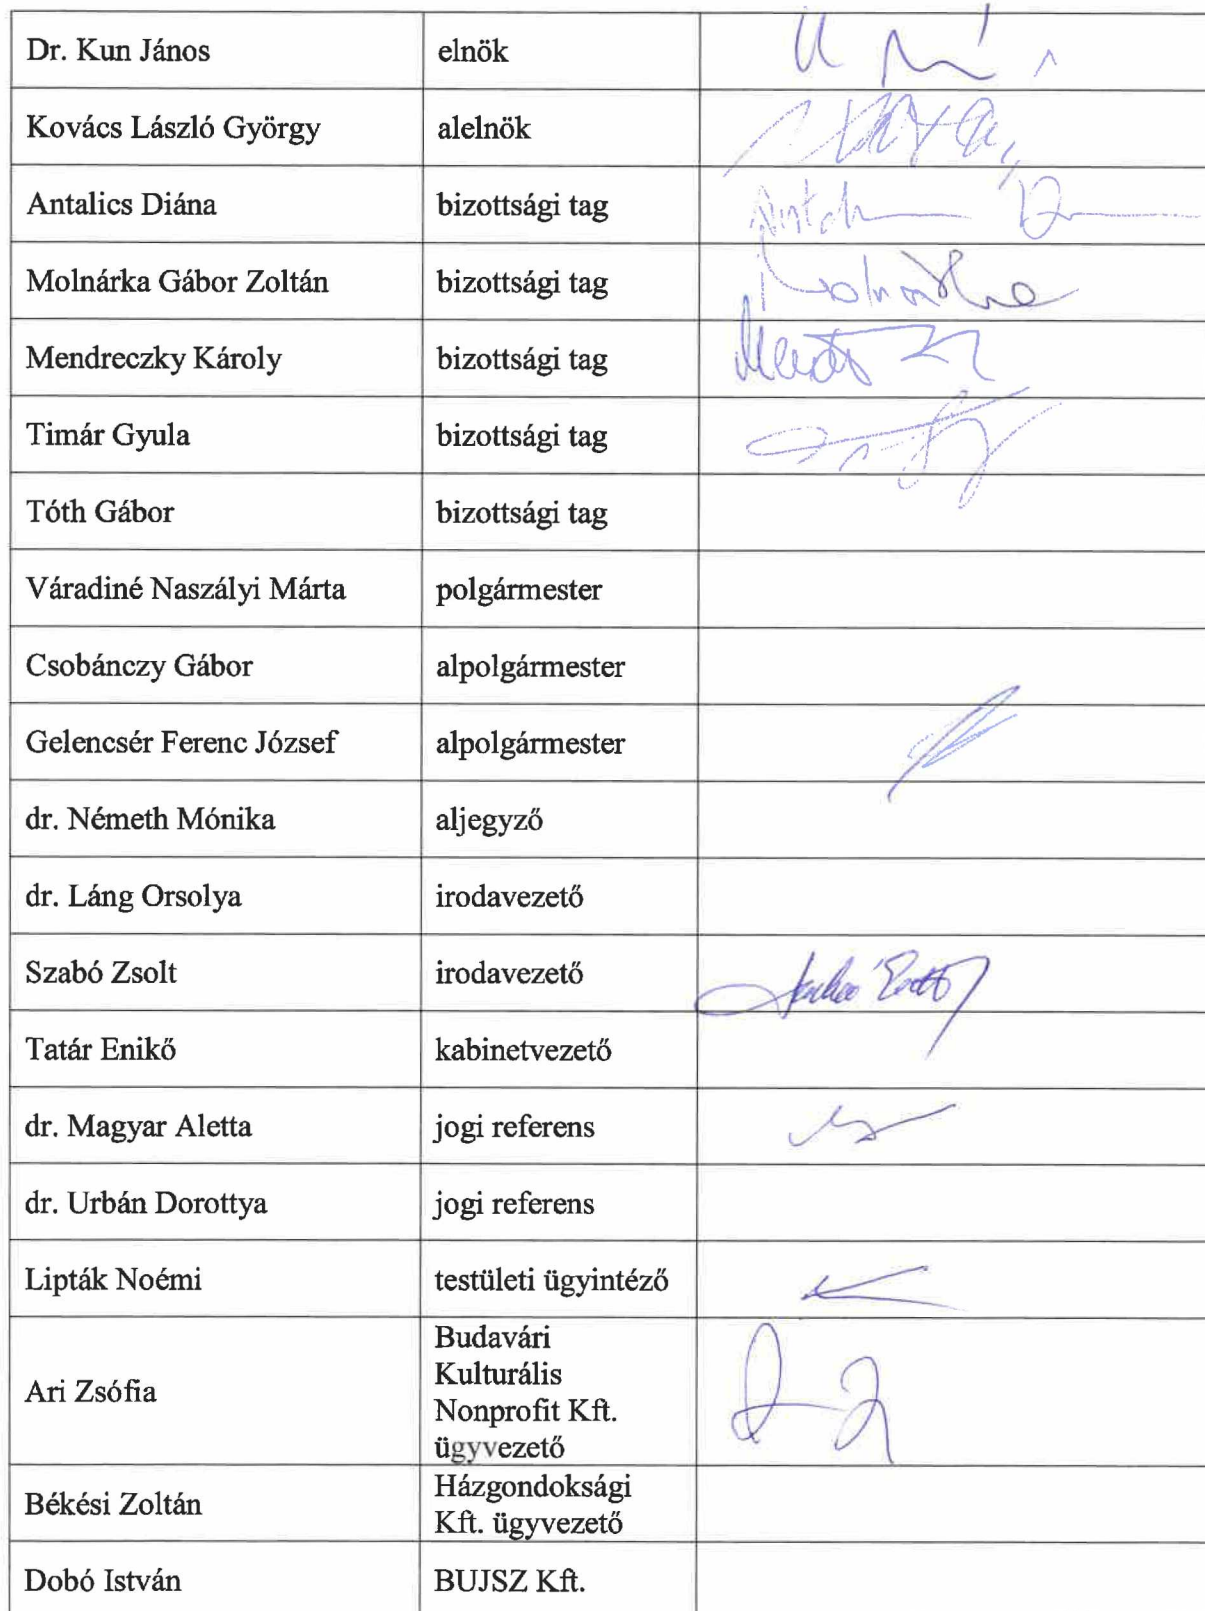 Dr. Kun János elnök
Kovács László György alelnök
Antalics Diána bizottsági tag
Molnárka Gábor Zoltán bizottsági tag
Mendreczky Károly bizottsági tag
Timár Gyula bizottsági tag
Tóth Gábor bizottsági tag
Váradiné Naszályi Márta polgármester
Csobánczy Gábor alpolgármester
Gelencsér Ferenc József alpolgármester
dr. Németh Mónika aljegyző
dr. Láng Orsolya irodavezető
Szabó Zsolt irodavezető
Tatár Enikő kabinetvezető
dr. Magyar Aletta jogi referens
dr. Urbán Dorottya jogi referens
Lipták Noémi testületi ügyintéző
Ari Zsófia
Budavári
Kulturális
Nonprofit Kft.
ügyvezető
Békési Zoltán
Házgondoksági
Kft. ügyvezető
Dobó István BUJSZ Kft.